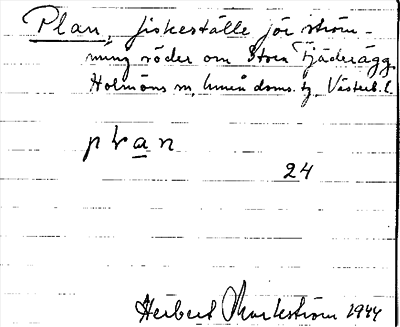 Plan, fiskeställe för ström-
ming söder om Stora Fjäderägg
Holmöns sn, Umeå doms. tg, Västerb. l.
plan
24
Herbert Markström 1944